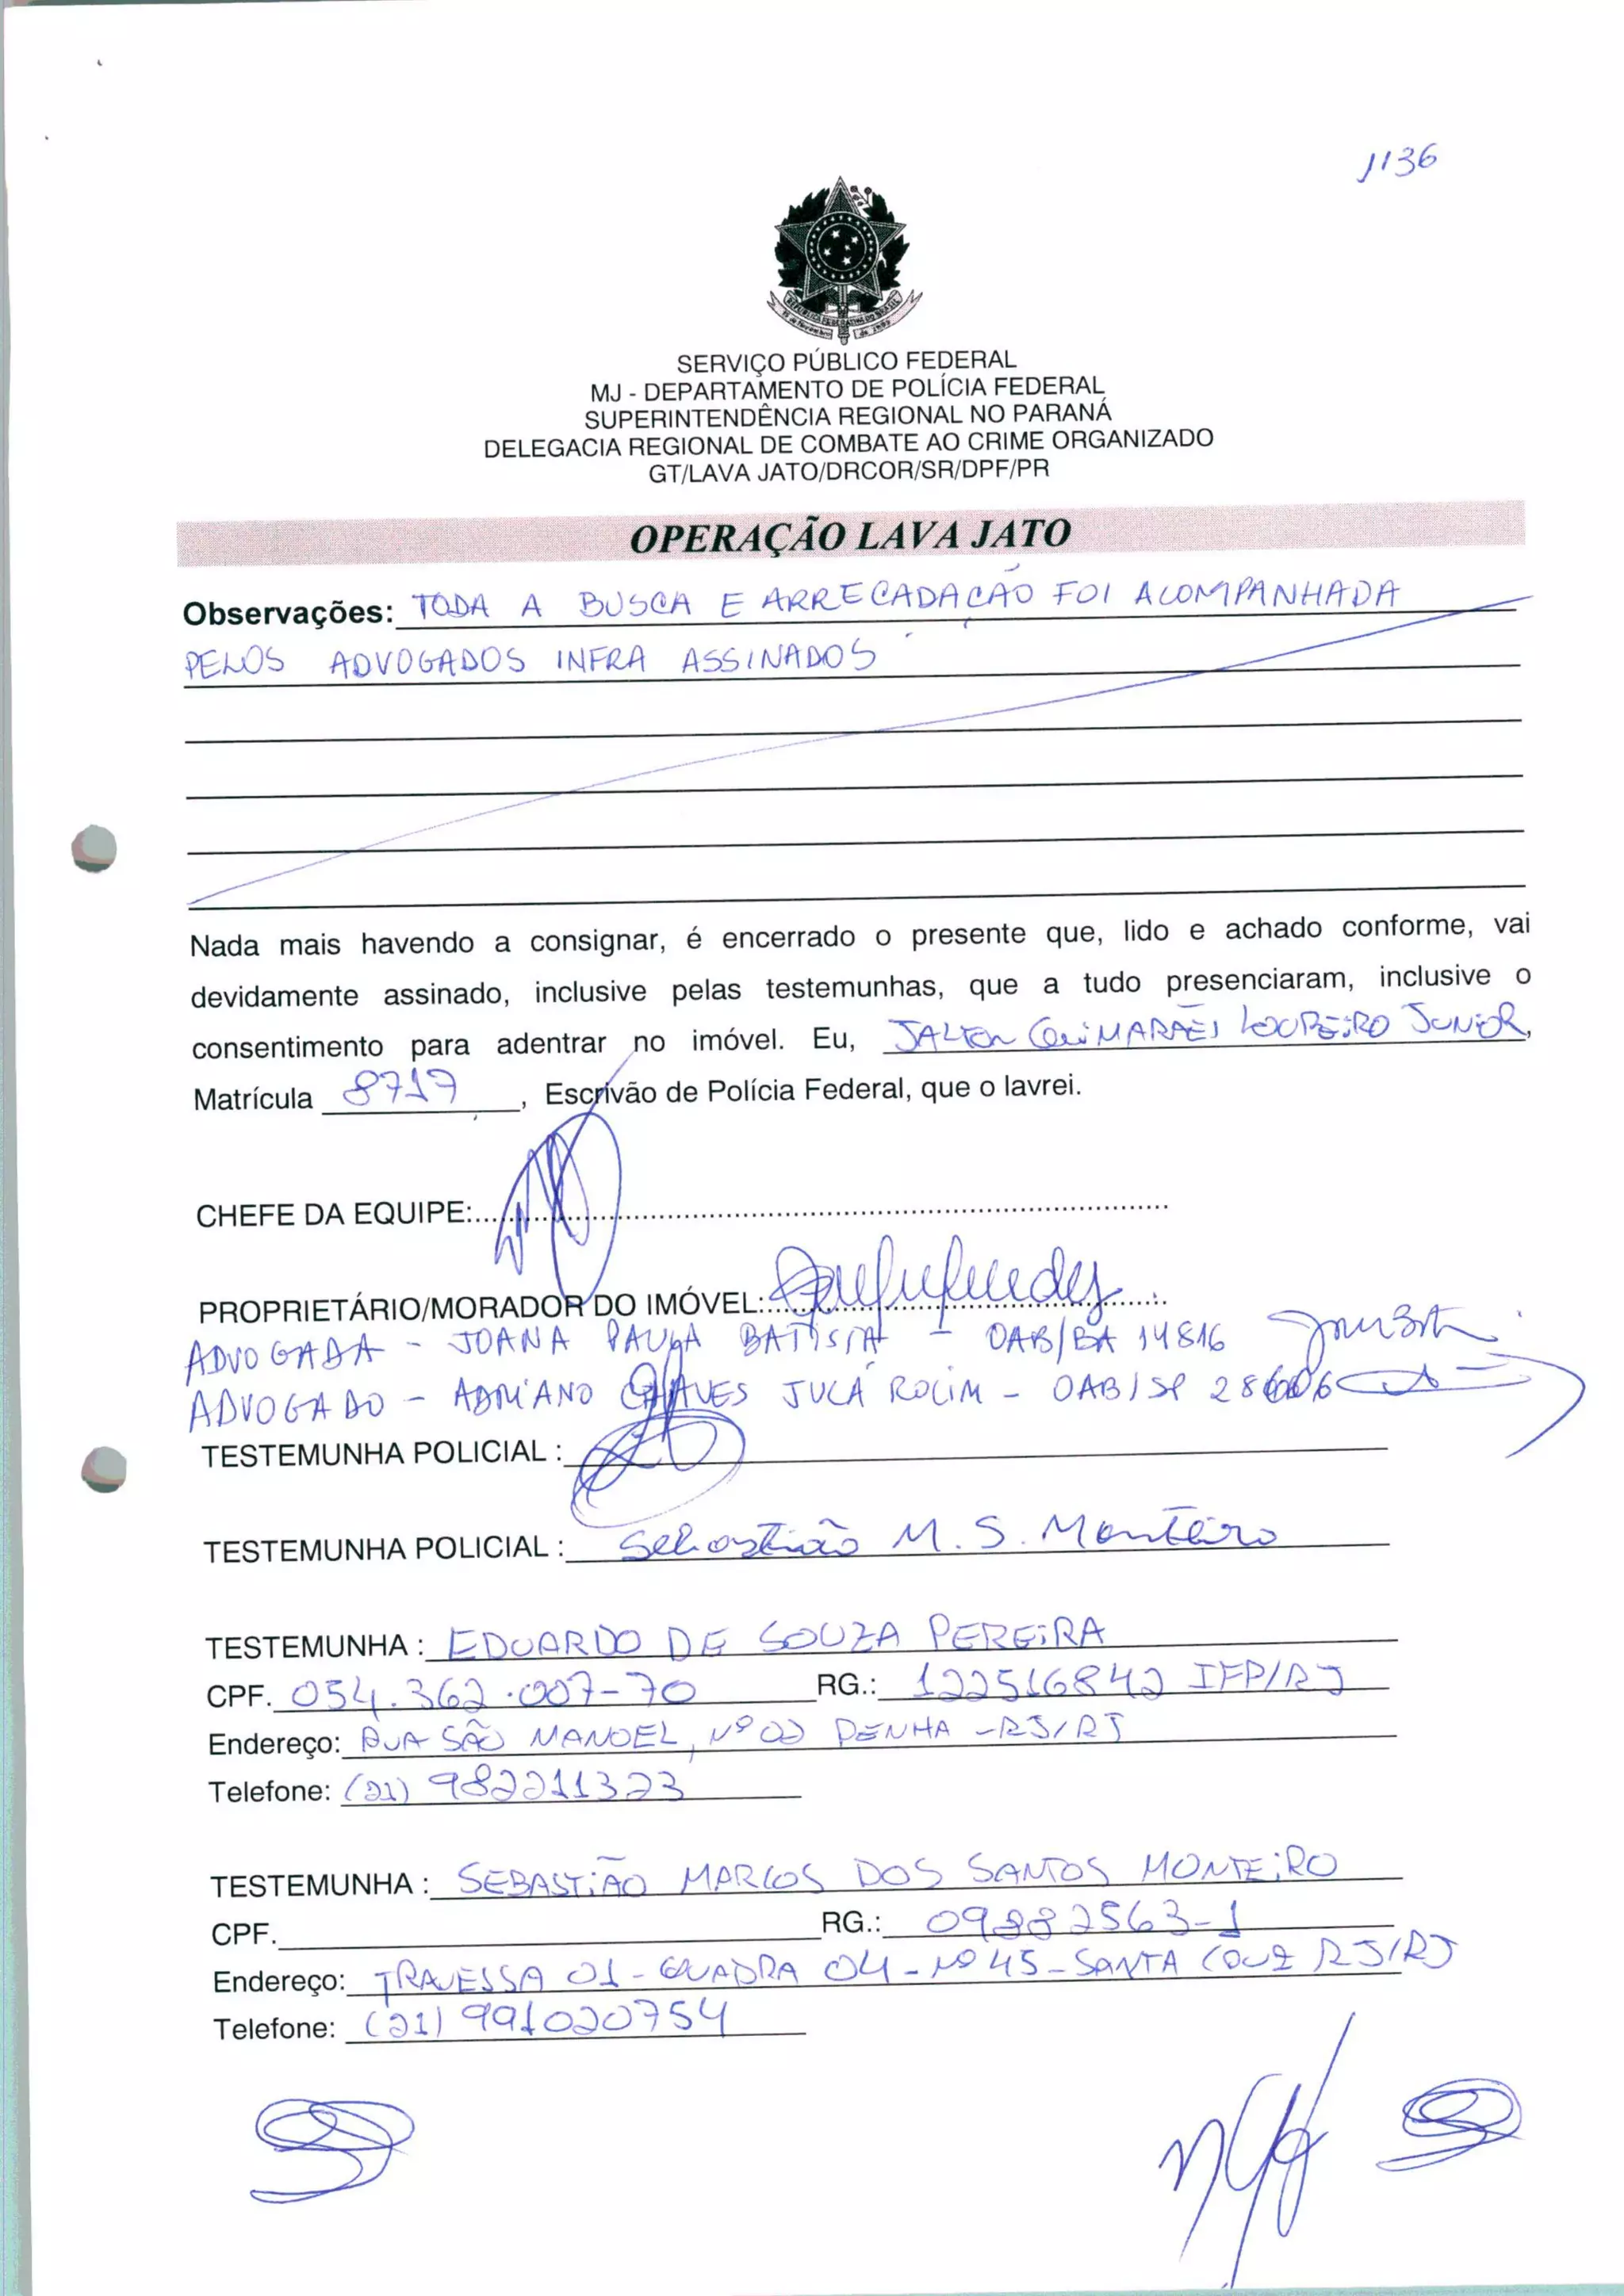 1136
SERVIÇO PÚBLICO FEDERAL
MJ - DEPARTAMENTO DE POLÍCIA FEDERAL
SUPERINTENDÊNCIA REGIONAL NO PARANÁ
DELEGACIA REGIONAL DE COMBATE AO CRIME ORGANIZADO
GT/LAVA JATO/DRCOR/SR/DPF/PR
OPERAÇÃO LAVA JATO
Observações: TODA A BUSCA E ARRECADAÇÃO FOI ACOMPANHADA
PELOS ADVOGADOS INFRA ASSINADOS
Nada mais havendo a consignar, é encerrado o presente que, lido e achado conforme, vai
devidamente assinado, inclusive pelas testemunhas, que a tudo presenciaram, inclusive o
consentimento para adentrar no imóvel. Eu, JALTON GUIMARÃES LOUREIRO JUNIOR,
Matrícula 8717, Escrivão de Polícia Federal, que o lavrei.
CHEFE DA EQUIPE:
PROPRIETÁRIO/MORADOR DO IMÓVEL:
ADVOGADA - JOANA PAULA BATISTA - OAB/BA 14816
ADVOGADO - ADRIANO CHAVES JUCÁ ROLIM - OAB/SP
TESTEMUNHA POLICIAL :
TESTEMUNHA POLICIAL : Sebastião M. S. Monteiro
TESTEMUNHA : EDUARDO DE SOUZA PEREIRA
CPF. 054.362.007-70 RG.: 122516842 IFP/RJ
Endereço: RUA SÃO MANOEL, Nº 02 PENHA -RJ/RJ
Telefone: (21) 982211323
TESTEMUNHA : SEBASTIÃO MARCOS DOS SANTOS MONTEIRO
CPF. RG.: 09882563-1
Endereço: TRAVESSA 01 - QUADRA 04 - Nº 45 - SANTA CRUZ RJ/RJ
Telefone: (21) 991020754